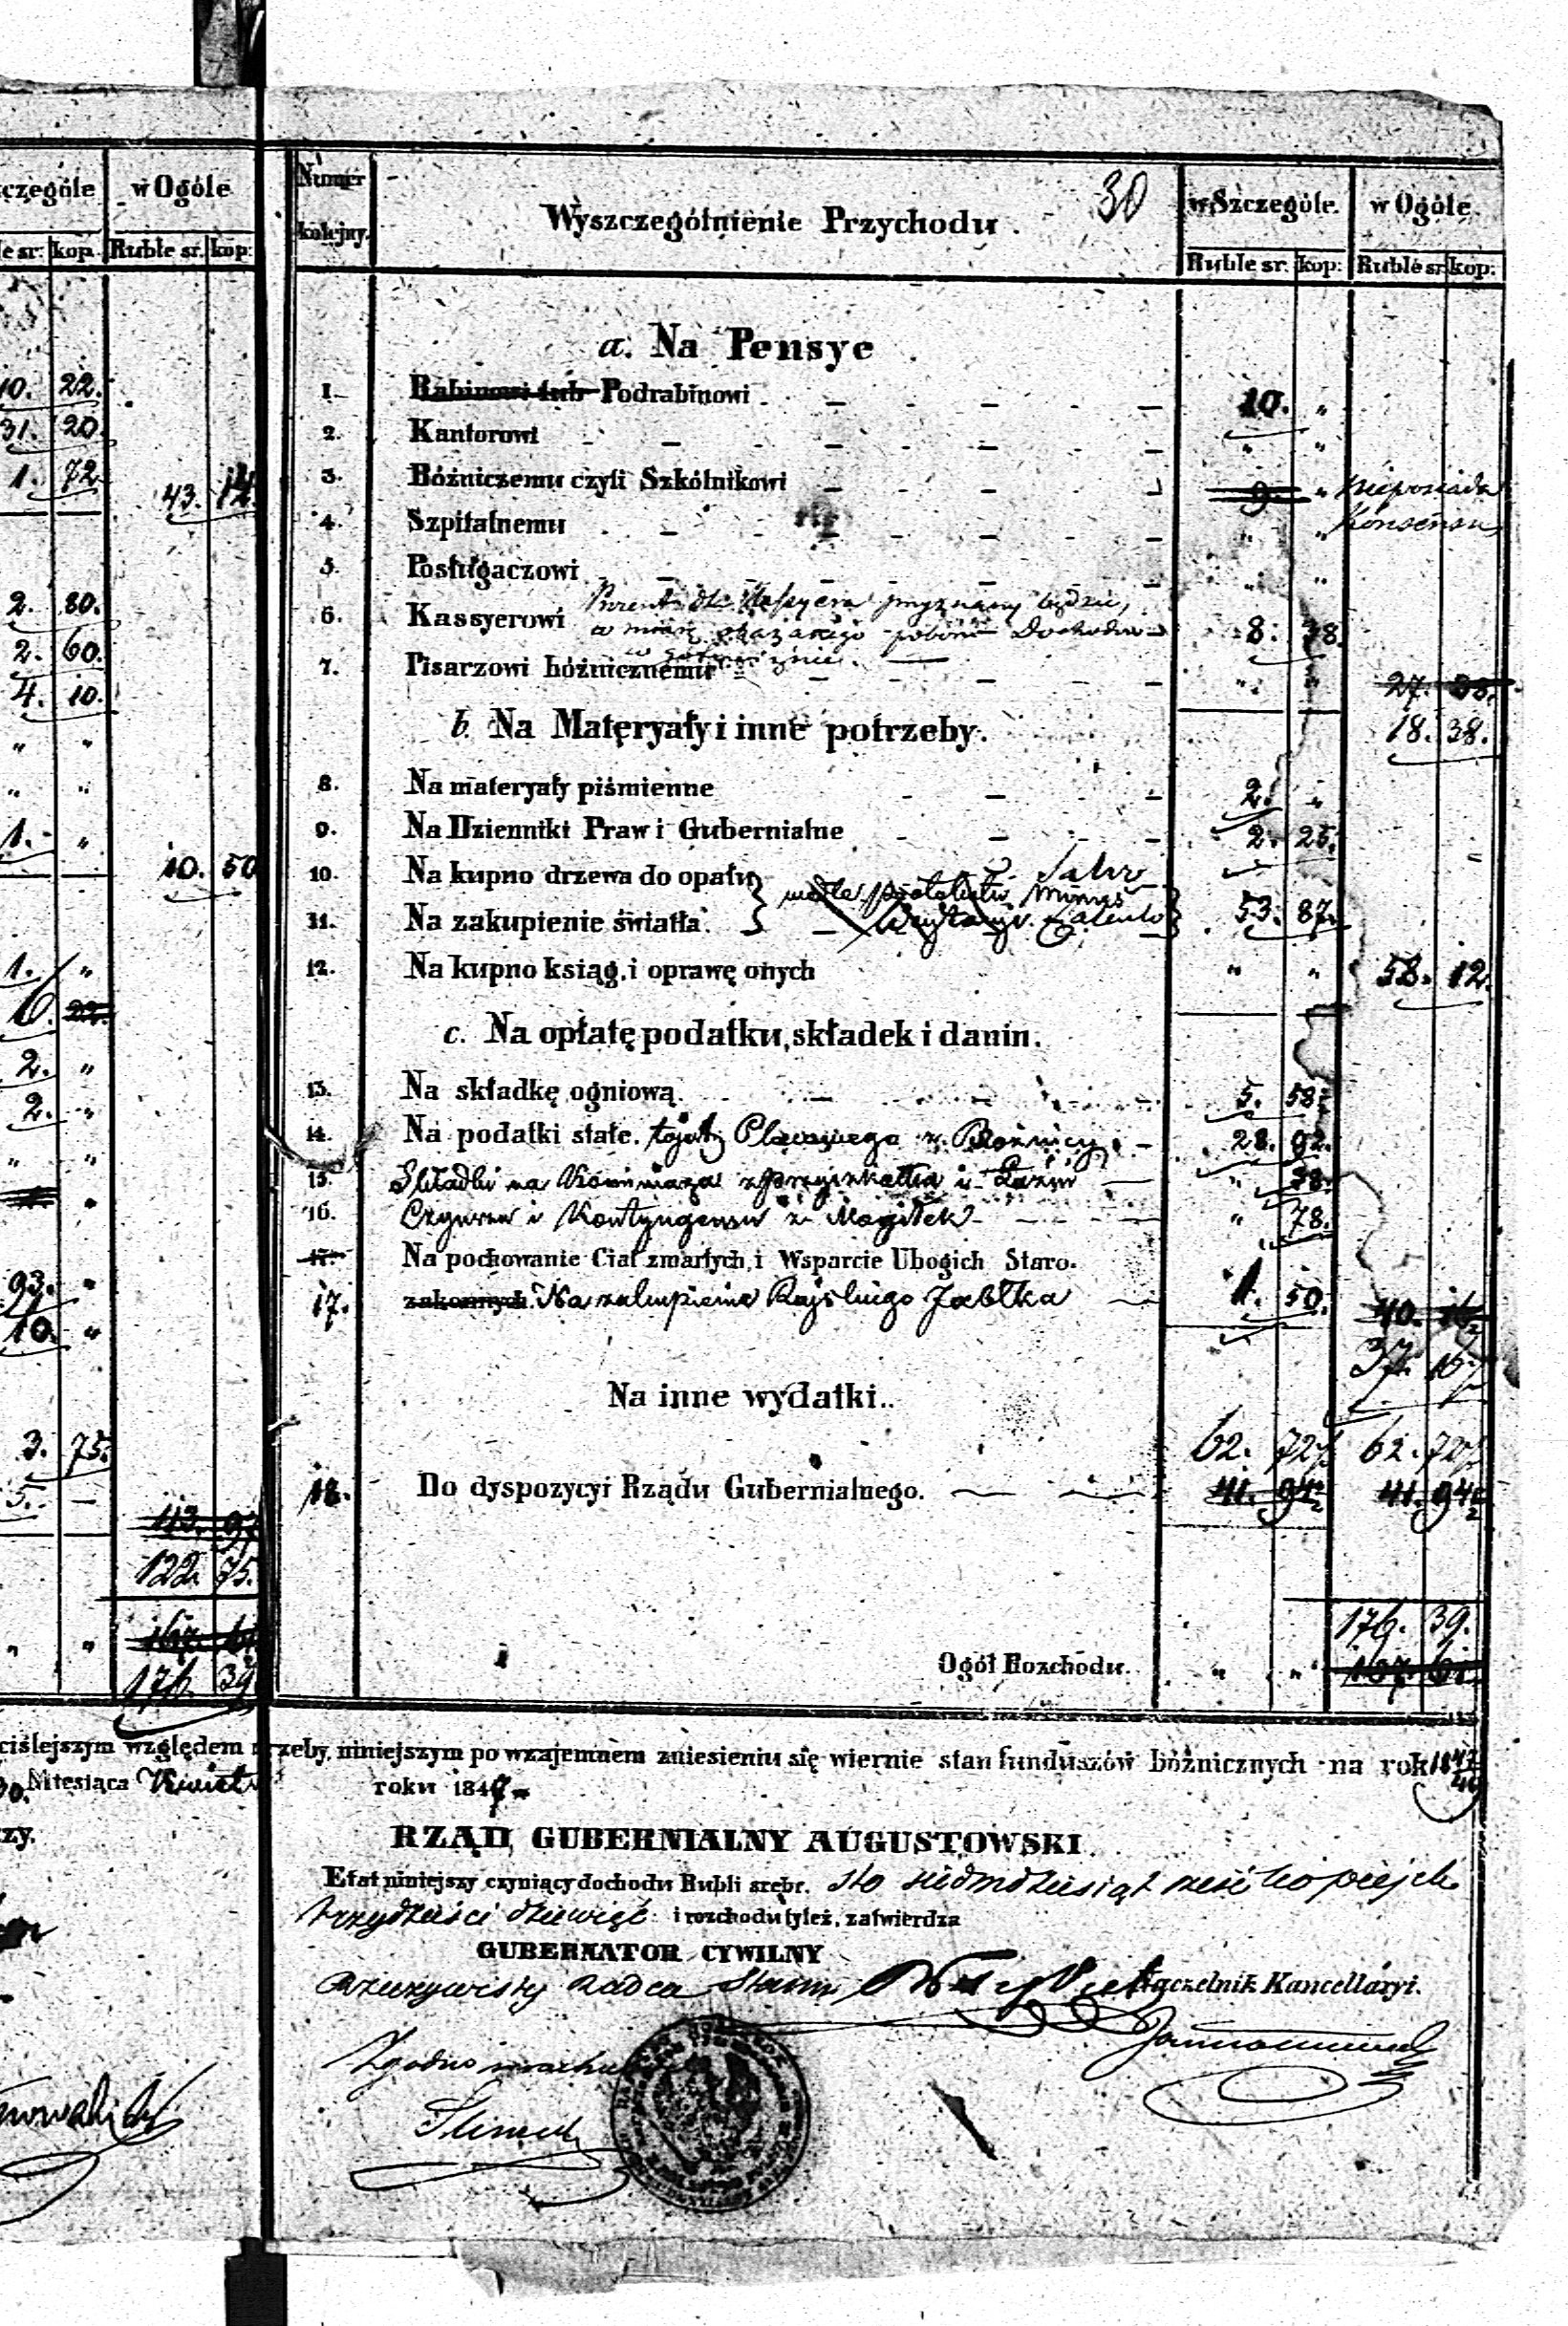 czególe w Ogóle
le sr: kop. Ruble sr. kop:
10. 22.
31. 20.
1. 72. 43. 14.
2. 80.
2. 60.
4. 10.
" "
" "
1. "
10. 50
1. "
6. 22.
2. "
2. "
" "
93. "
10. "
3. 75.
5. —
113. 97
122. 75.
" " 167. 61
176. 39
Numer kolejny. Wyszczególnienie Przychodu. 30 w Szczególe. w Ogóle.
Ruble sr: kop: Ruble sr kop:
a. Na Pensye
1. Rabinowi lub Podrabinowi 10. "
2. Kantorowi " "
3. Bóźniczemu czyli Szkólnikowi 9. " Nieposiada
4. Szpitalnemu " " Konsensu
5. Posługaczowi " "
6. Kassyerowi Procent dla Kassyera przyznany będzie,
w miarę okazanego poboru Dochodów 8. 38.
7. Pisarzowi bóźnicznemu " " 27. 38.
18. 38.
b. Na Materyały i inne potrzeby.
8. Na materyały piśmienne 2. "
9. Na Dzienniki Praw i Gubernialne 2. 25.
10. Na kupno drzewa do opału Salvo
11. Na zakupienie światła. } minus 53. 87.
12. Na kupno ksiąg, i oprawę onych " " 58. 12.
c. Na opłatę podatku, składek i danin.
13. Na składkę ogniową 5. 58½
14. Na podatki stałe. Bożnicy. 28. 92.
15. Składki na Kominiarza i Łaźni " 38.
16. Czynszu i Kontyngensu z Mogiłek " 78.
17. Na pochowanie Ciał zmarłych, i Wsparcie Ubogich Staro-
17. zakonnych Na zakupienie Rajskiego Jabłka 1. 50. 40. 16½
37. 16½
Na inne wydatki..
62. 72½ 62. 72½
18. Do dyspozycyi Rządu Gubernialnego. 41. 94½ 41. 94½
176. 39.
Ogół Rozchodu. " " 167. 61.
ciślejszym względem rzeby, niniejszym po wzajemnem zniesieniu się wiernie stan funduszów bóźnicznych na rok 1847/49
30. Miesiąca Kwietn roku 1847.
zy.
RZĄD GUBERNIALNY AUGUSTOWSKI.
Etat niniejszy czyniący dochodu Rubli srebr. sto siedmdziesiąt sześć kopiejek
trzydzieści dziewięć i rozchodu tyleż, zatwierdza
GUBERNATOR CYWILNY
Rzeczywisty Radca Stanu Naczelnik Kancellaryi.
Zgodno